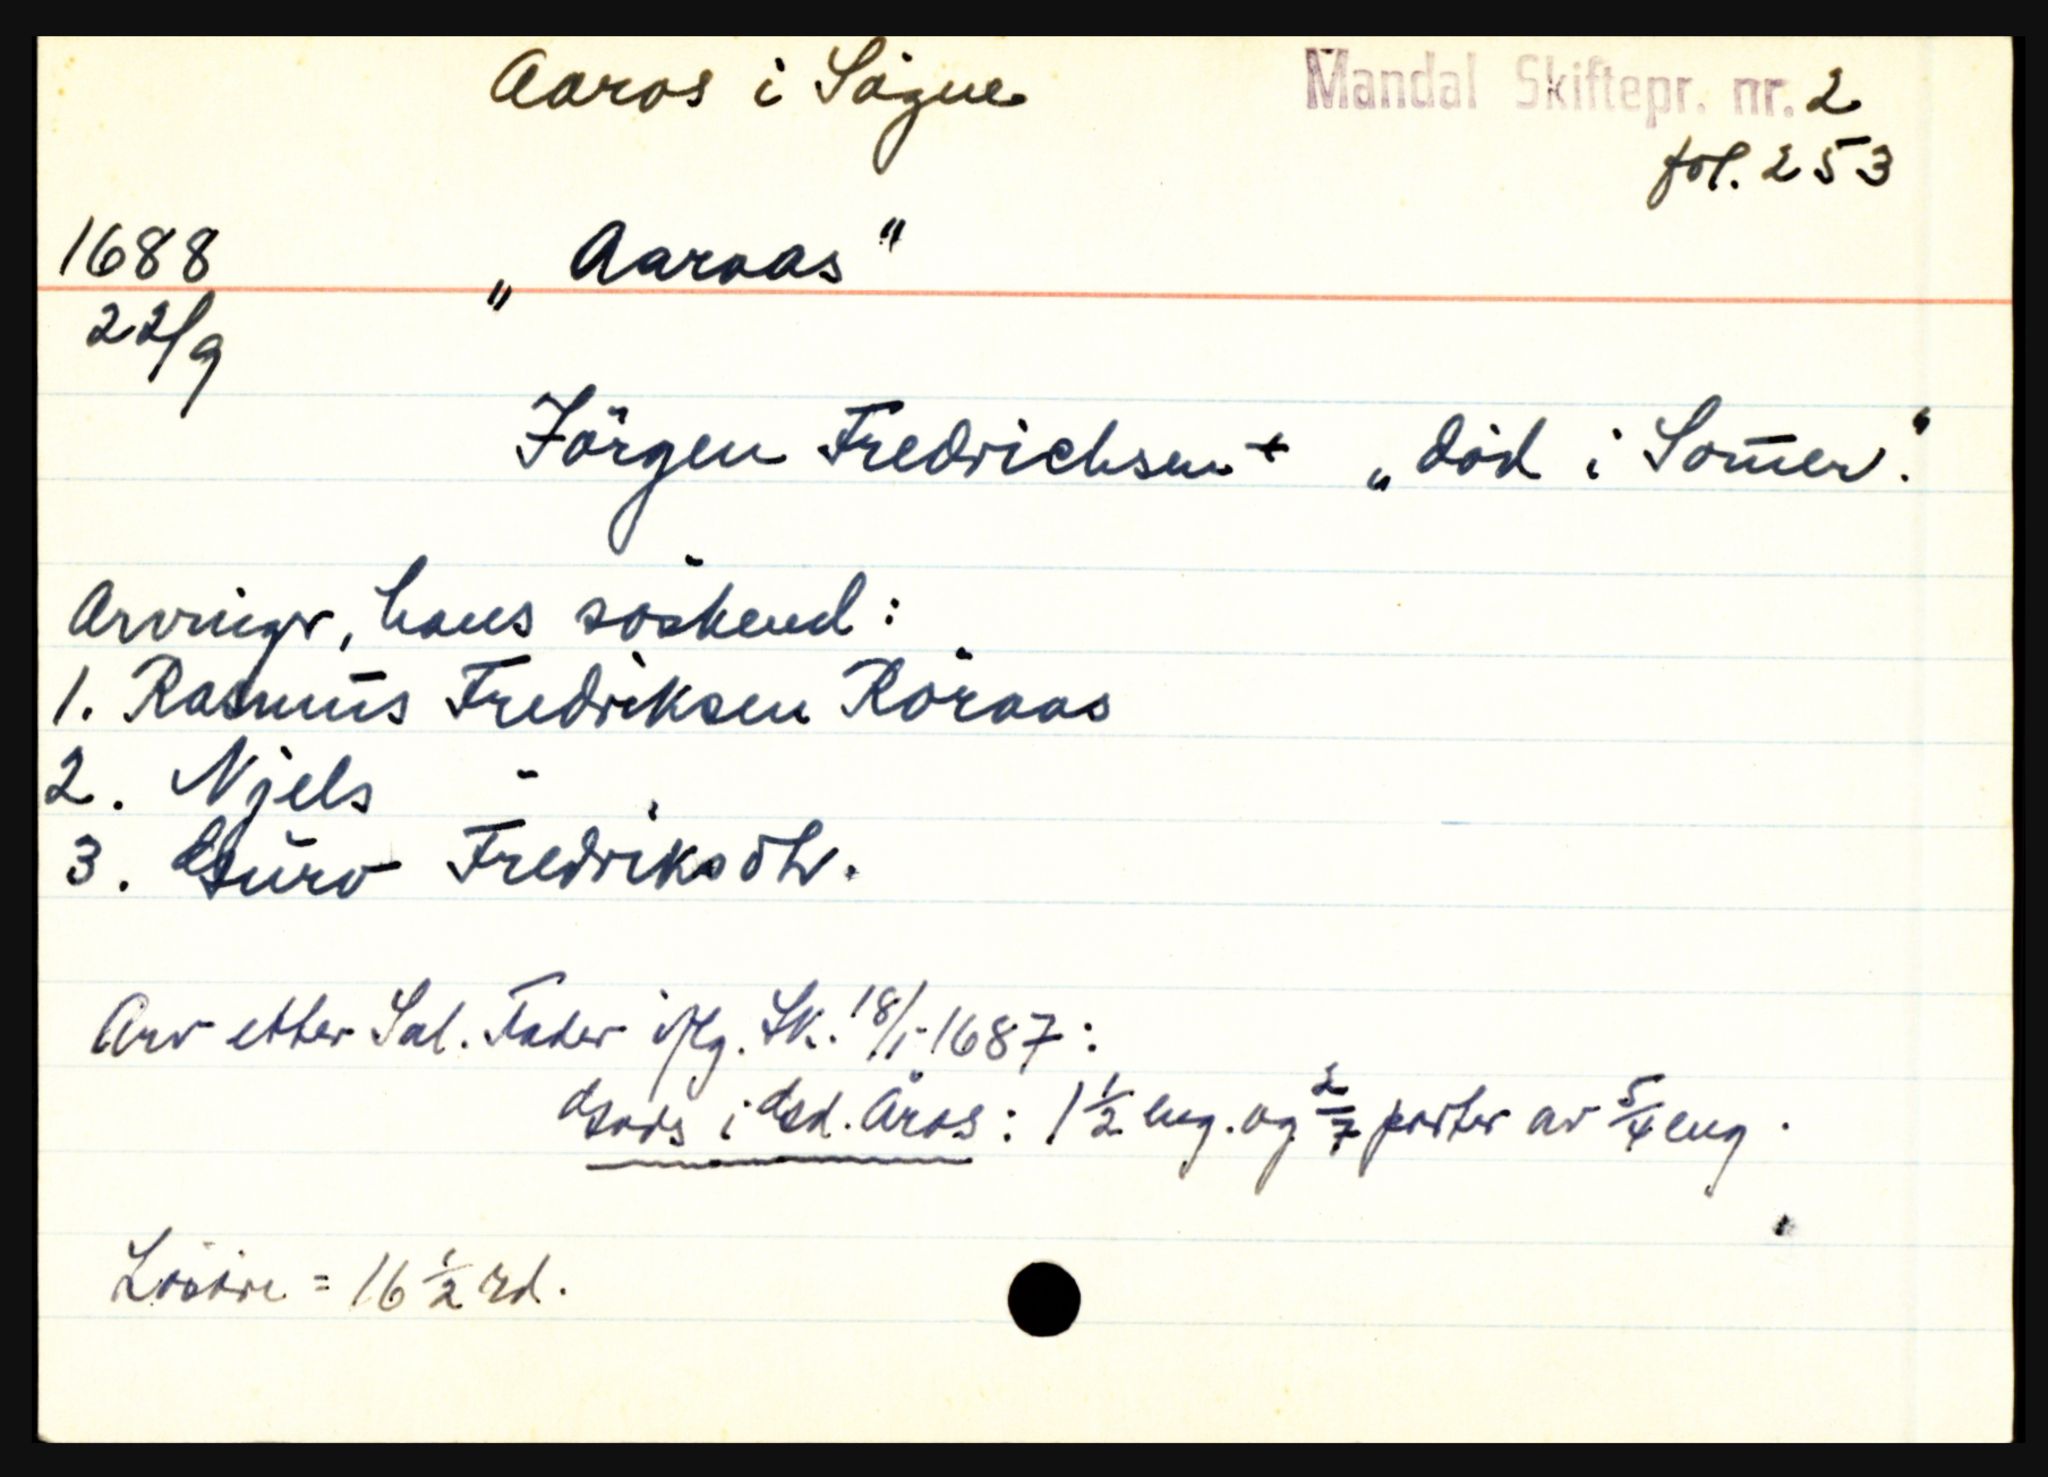 Aaros i Sögne
Mandal Skiftepr. nr. 2
fol. 253
1688
22/9
„Aaroas"
Jörgen Fredrichsen + „död i Som̄er."
Arvinger, hans söskend:
1. Rasmus Fredriksen Röraas
2. Njels -
3. Guro Fredriksdtr.
Arv etter Sal. Fader iflg. Sk. 18/1-1687:
Gods i Gd. Åros: 1 1/2 eng. og 2/7 parter av 5/4 eng.
Lösöre = 16 1/2 rd.